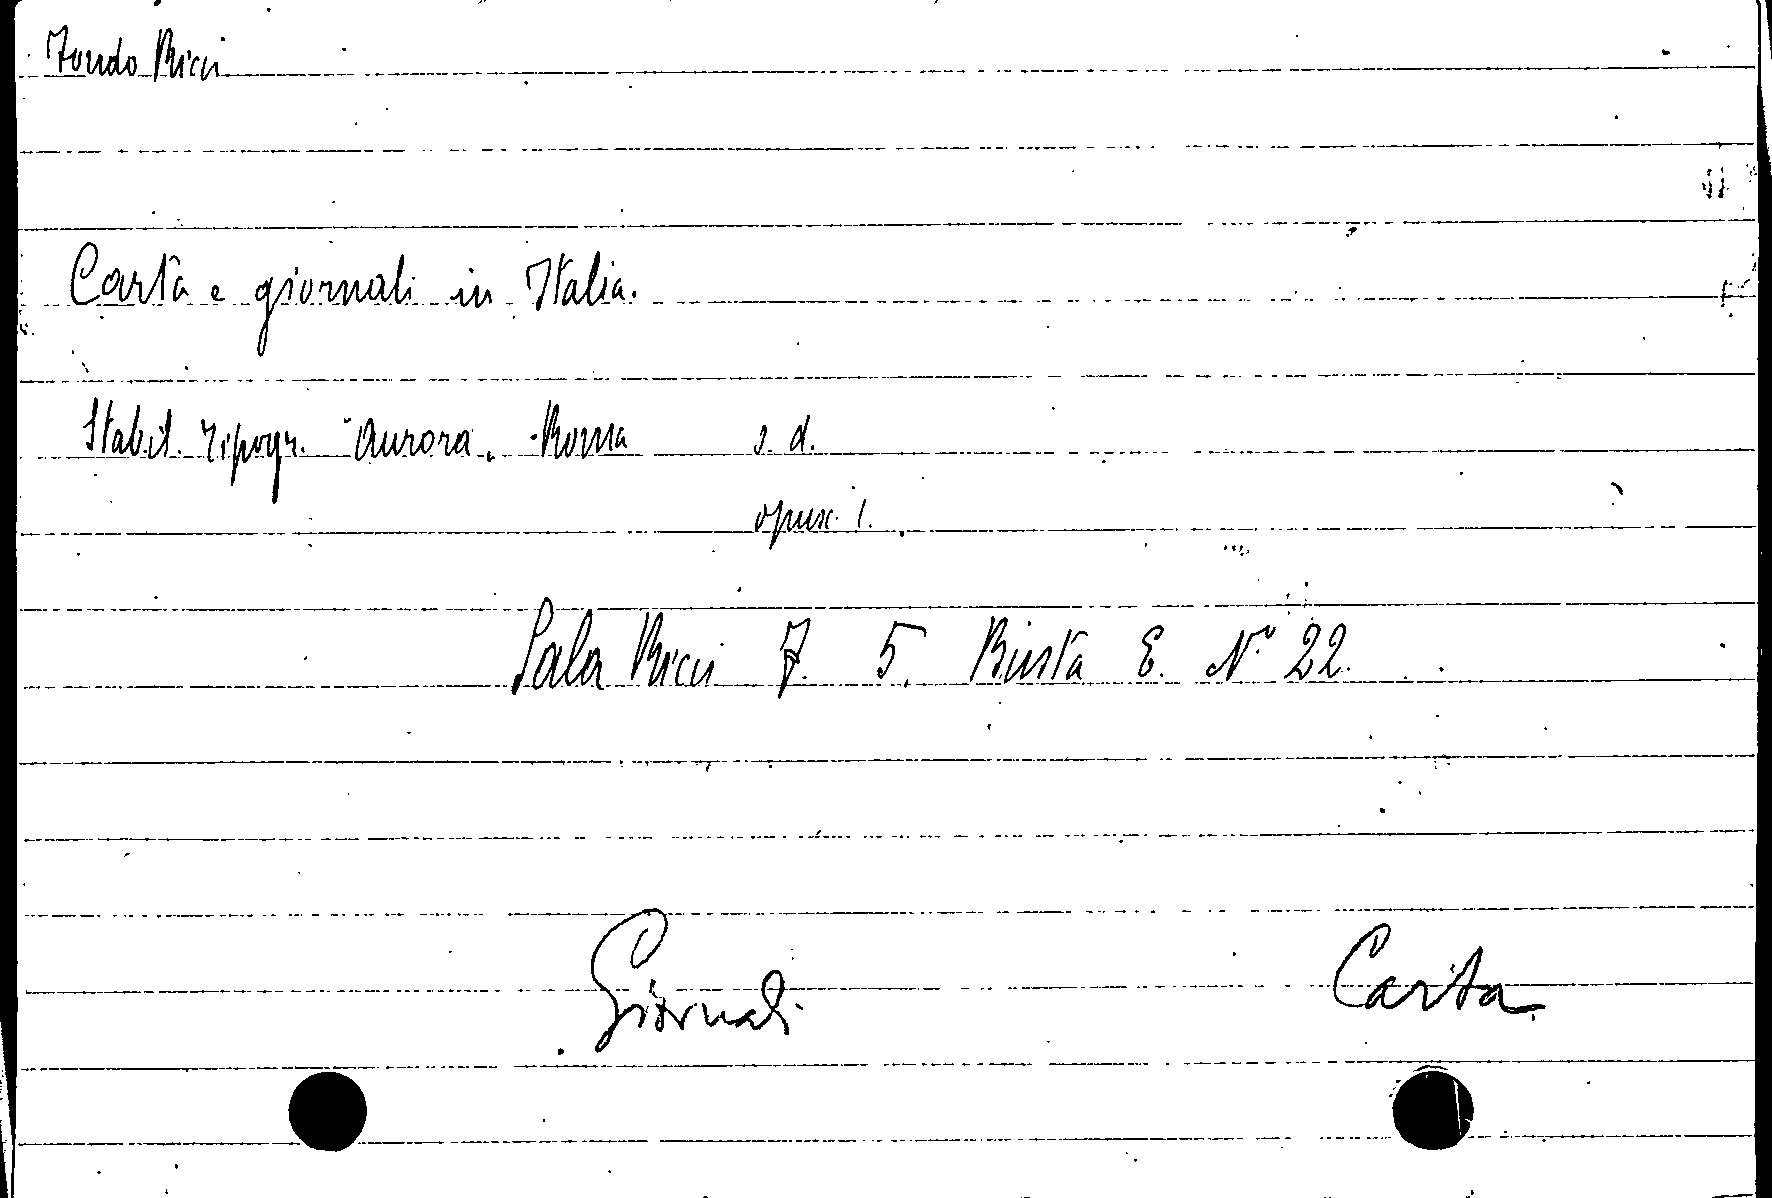 Fondo Ricci
Carta e giornali in Italia.
Stabil. Tipogr. "Aurora" - Roma s. d.
opusc. 1.
Sala Ricci F. 5. Busta E. N° 22.
Giornali Carta